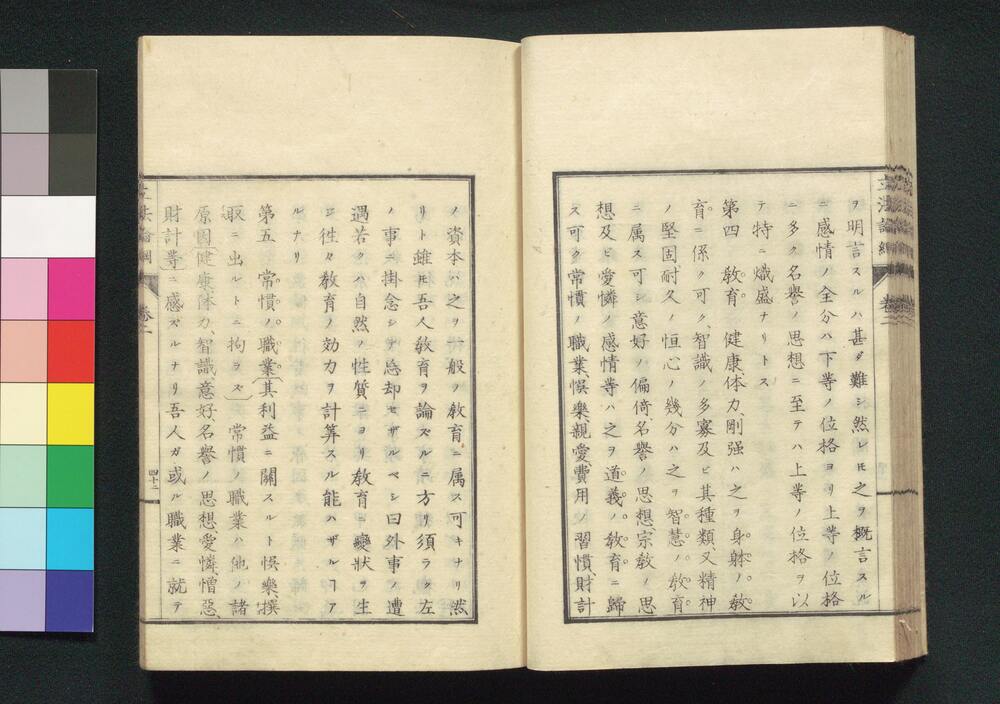 ヲ明言スルハ甚ダ難シ然レ𪜈之ヲ概言スル
ニ感情ノ全分ハ下等ノ位格ヨリ上等ノ位格
ニ多ク名譽ノ思想ニ至テハ上等ノ位格ヲ以
テ特ニ熾盛ナリトス
第四 敎育 健康、体力、剛强ハ之ヲ身躰ノ敎
育ニ係ク可ク、智識ノ多寡及ビ其種類、又精神
ノ堅固耐久ノ恒心ノ幾分ハ之ヲ智慧ノ敎育
ニ属ス可シ、意好ノ偏倚名譽ノ思想、宗敎ノ思
想及ビ愛憐ノ感情等ハ之ヲ道義ノ敎育ニ歸
ス可ク常慣ノ職業、娯樂、親愛、費用ノ習慣、財計
立法論綱 卷二
ノ資本ハ之ヲ一般ノ敎育ニ属ス可キナリ然
リト雖𪜈吾人敎育ヲ論ズルニ方リ須ラク左
ノ事ニ掛念シテ忘却セザルベシ曰外事ノ遭
遇若クハ自然ノ性質ニヨリ敎育ニ變狀ヲ生
ジ徃々敎育ノ効力ヲ計筭スル能ハザルヿア
ルナリ
第五 常慣ノ職業(其利益ニ關スルト娯樂撰
取ニ出ルトニ拘ラズ) 常慣ノ職業ハ他ノ諸
原因健康、体力、智識、意好、名譽ノ思想、愛憐、憎惡、
財計等ニ感ズルナリ吾人ガ或ル職業ニ就テ
立法論綱 卷二
四十二